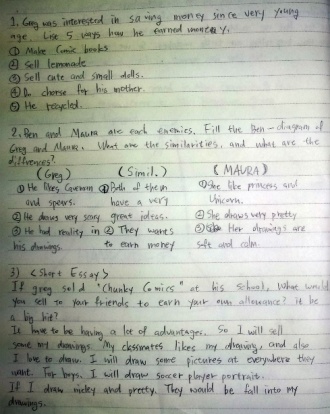 1. Greg was interested in saving money since very young
age. List 5 ways how he earned money.
① Make Comic books
② Sell lemonade
③ Sell cute and small dolls.
④ Do chorse for his mother.
⑤ He recycled.
2. Ben and Maura are each enemies. Fill the Ben-diagram of
Greg and Maura. What are the similarities, and what are the
diffrences?
(Greg) (Simil.) (MAURA)
① He likes Caveman ① Both of them ① She like princess and
and spears. have a very Unicorn.
② He draws very scary great ideas. ② She draws very pretty
③ He had reality in ② They wants ③ Her drawings are
his drawings. to earn money soft and calm.
3) <Short Essay>
If greg sold "Chunky Comics" at his school, What would
you sell to your friends to earn your own allowance? It be
a big hit?
It have to be having a lot of advantages. So I will sell
some my drawings. My classmates likes my drawing, and also
I love to draw. I will draw some pictures at everywhere they
want. For boys, I will draw soccer player portrait.
If I draw nicley and pretty. They would be fall into my
drawings.